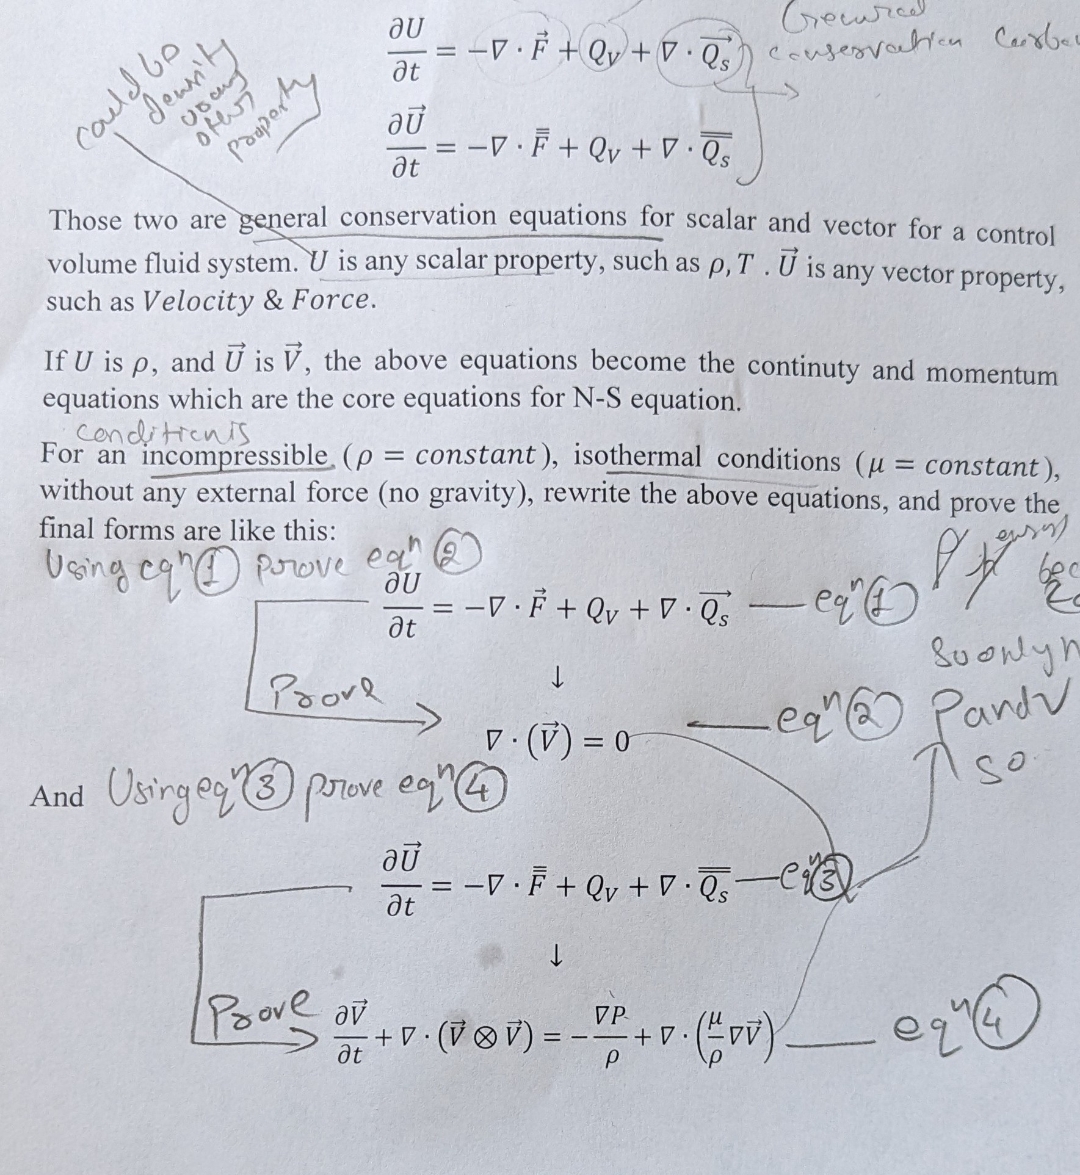 ∂U/∂t = −∇ · F⃗ + Q_V + ∇ · Q_s⃗
conservation
could be
density
or any
other
property
∂U⃗/∂t = −∇ · F̿ + Q_V + ∇ · Q̿_s
Those two are general conservation equations for scalar and vector for a control
volume fluid system. U is any scalar property, such as ρ, T . U⃗ is any vector property,
such as Velocity & Force.
If U is ρ, and U⃗ is V⃗, the above equations become the continuty and momentum
equations which are the core equations for N-S equation.
conditions
For an incompressible (ρ = constant), isothermal conditions (μ = constant),
without any external force (no gravity), rewrite the above equations, and prove the
final forms are like this:
Using eqⁿ ① prove eqⁿ ②
∂U/∂t = −∇ · F⃗ + Q_V + ∇ · Q_s⃗ — eqⁿ ①
So only
↓
Prove
∇ · (V⃗) = 0
eqⁿ ② P and V
so
And Using eqⁿ ③ prove eqⁿ ④
∂U⃗/∂t = −∇ · F̿ + Q_V + ∇ · Q̿_s — eqⁿ ③
↓
Prove
∂V⃗/∂t + ∇ · (V⃗ ⊗ V⃗) = −∇P/ρ + ∇ · (μ/ρ ∇V⃗) — eqⁿ ④